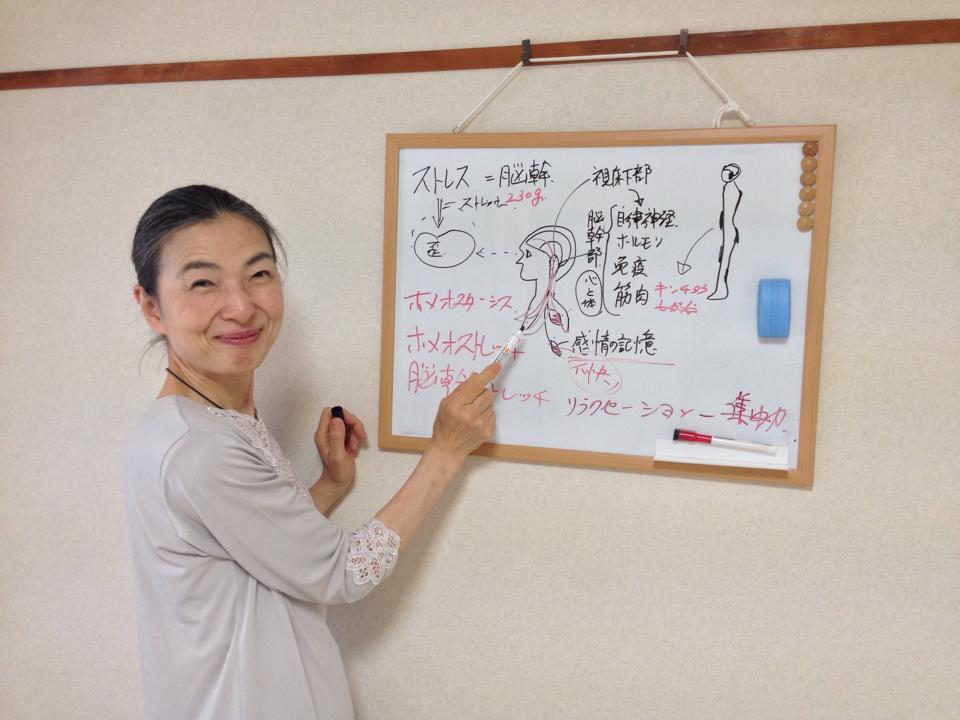 ストレス =脳幹
ストレッサー 230g.
歪
視床下部
脳幹部
自律神経
ホルモン
免疫
筋肉
心と体
キンチョウ
ホメオスターシス
ホメオストレッチ
脳幹ストレッチ
感情の記憶
不快
リラクセーション – 集中力